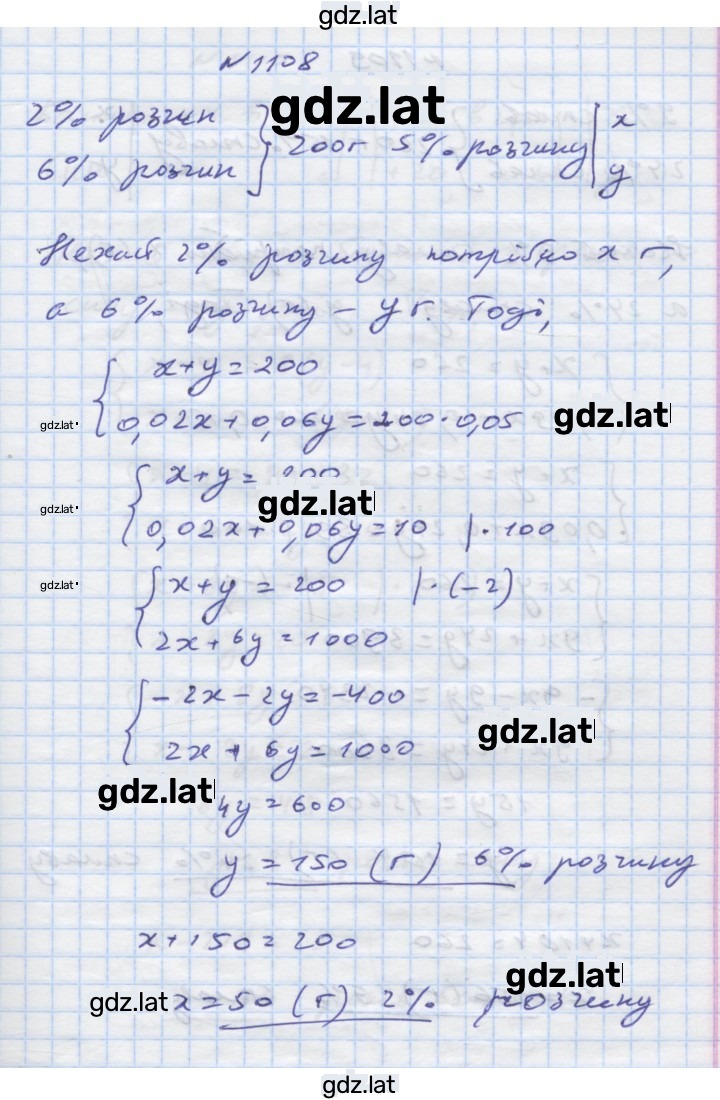 gdz.lat
N 1108
gdz.lat
2% розчин
6% розчин } 200г 5% розчину | x
y
Нехай 2% розчину потрібно x г,
а 6% розчину – y г. Тоді,
{ x+y=200
gdz.lat 0,02x+0,06y=200·0,05 gdz.lat
{ x+y=200
gdz.lat gdz.lat
0,02x+0,06y=10 |·100
gdz.lat { x+y=200 |·(-2)
2x+6y=1000
{ -2x-2y=-400
gdz.lat
2x+6y=1000
gdz.lat 4y=600
y=150 (г) 6% розчину
x+150=200
gdz.lat
gdz.lat x=50 (г) 2% розчину
gdz.lat